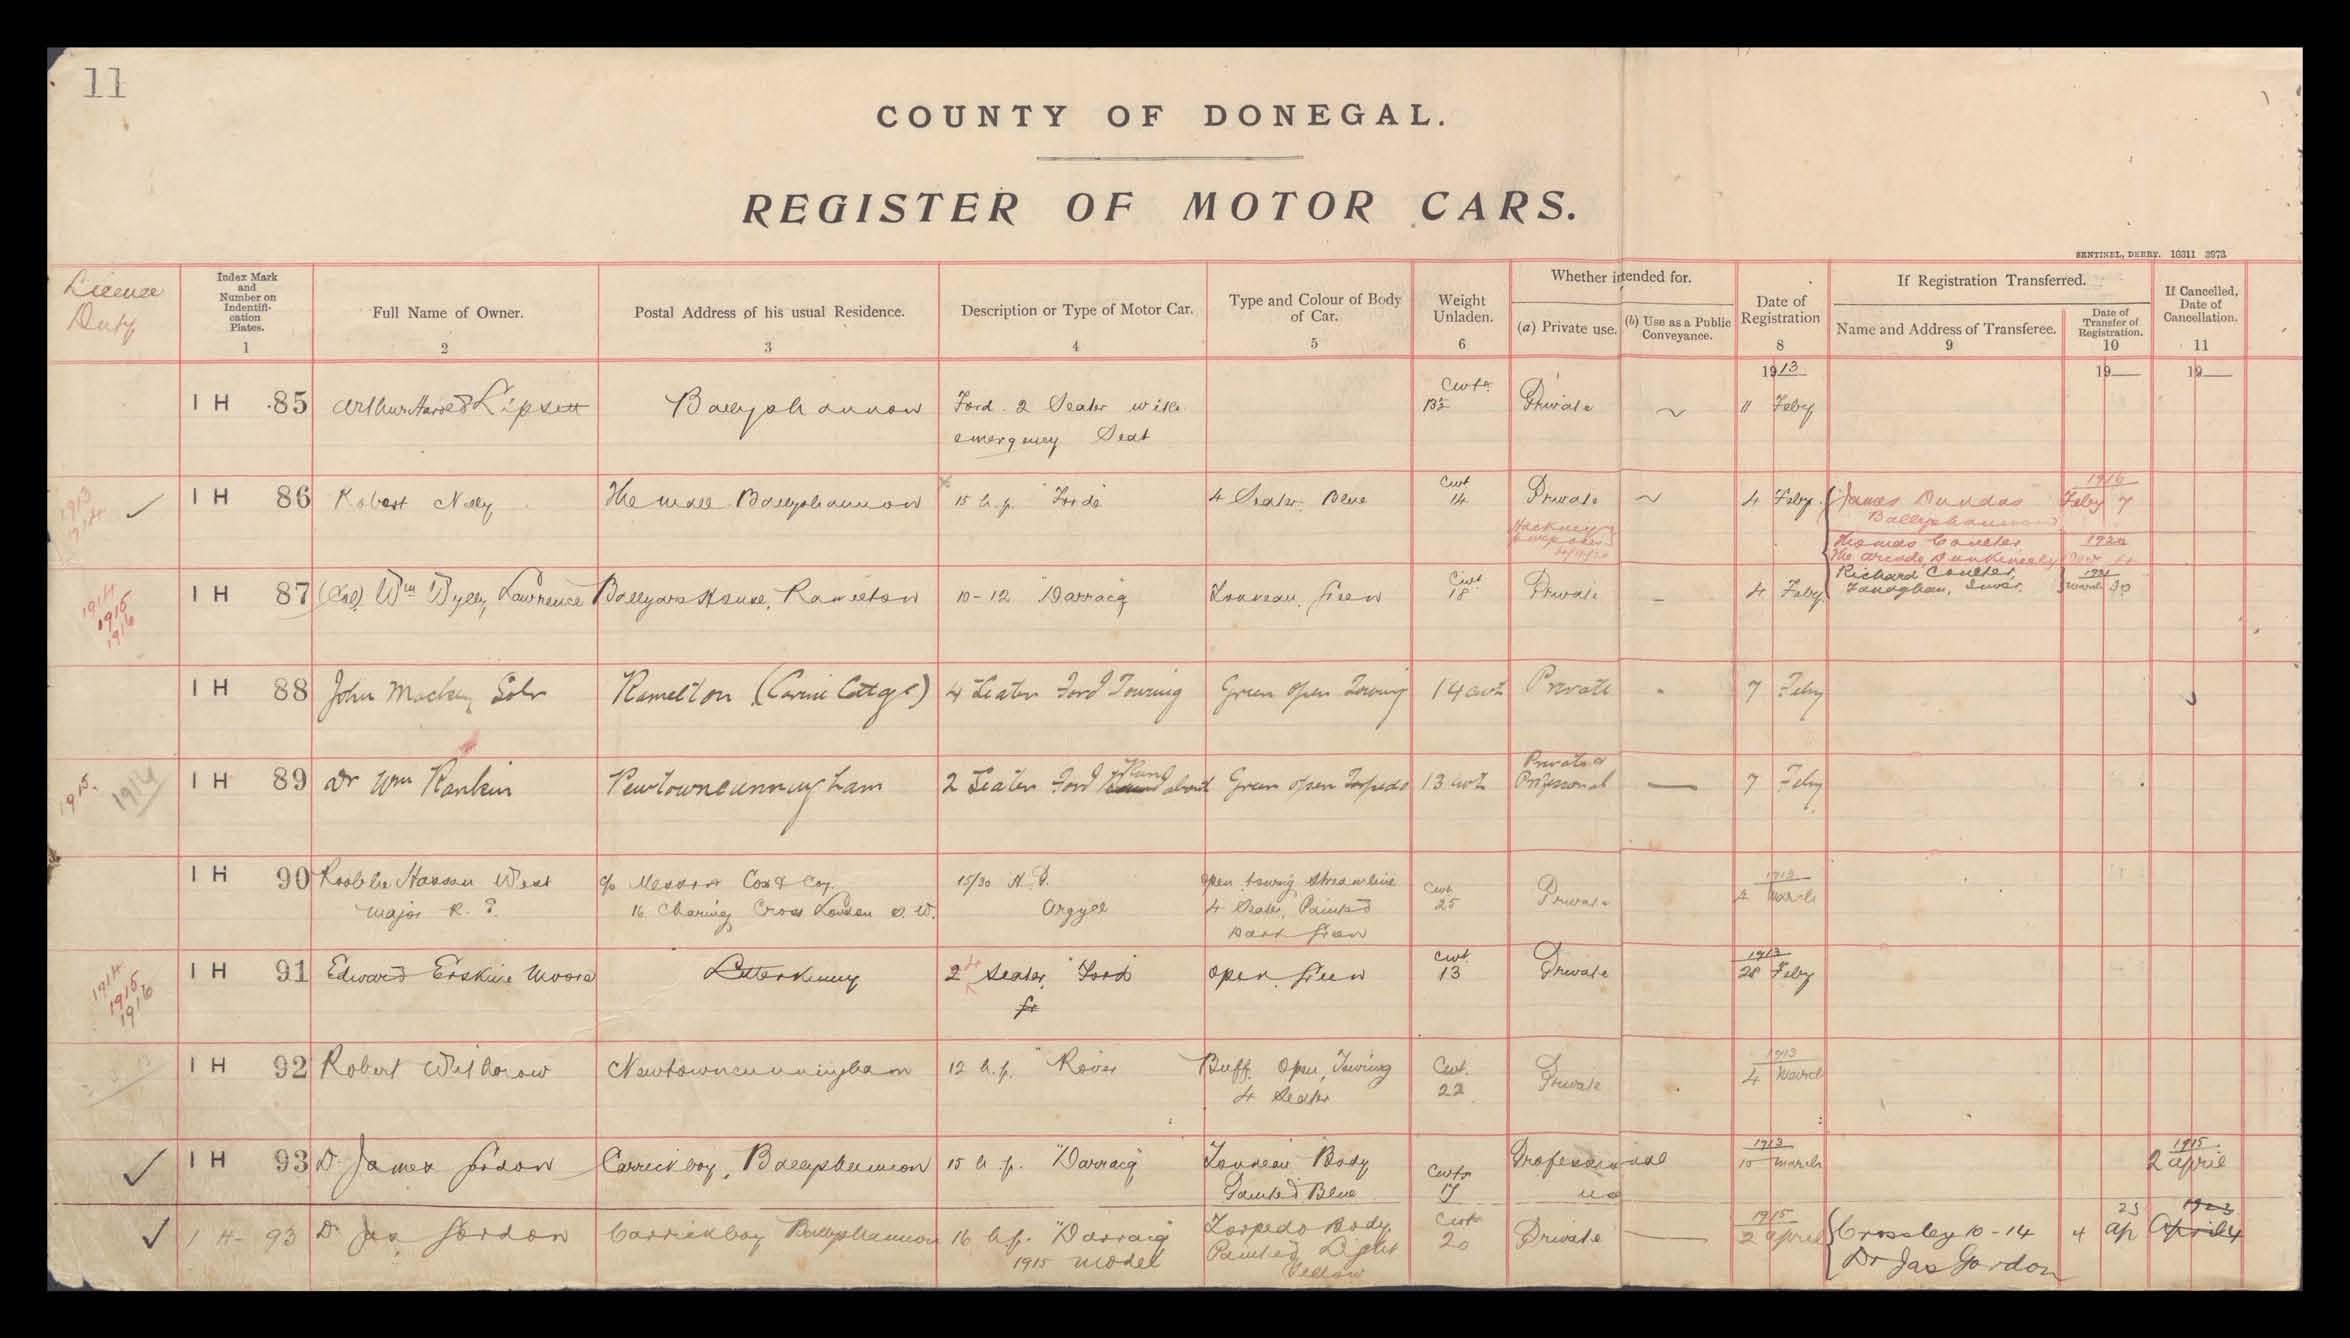 11
COUNTY OF DONEGAL.
REGISTER OF MOTOR CARS.
SENTINEL, DERRY. 16311 3973
Licence Duty
Index Mark and Number on Indentifi-cation Plates. 1
Full Name of Owner. 2
Postal Address of his usual Residence. 3
Description or Type of Motor Car. 4
Type and Colour of Body of Car. 5
Weight Unladen. 6
Whether intended for.
(a) Private use.
(b) Use as a Public Conveyance.
Date of Registration 8
If Registration Transferred.
Name and Address of Transferee. 9
Date of Transfer of Registration. 10
If Cancelled, Date of Cancellation. 11
1913 19 19
I H 85 Arthur Lipsett Ballyshannon Ford 2 Seater with Cwts Private 11 Feby
emergency Seat
1913 1914 I H 86 Robert Neely The Mall Ballyshannon 15 h.p. "Forde" 4 Seater Blue Cwt 14 Private 4 Feby James Dundas 1916 Feby 7
Ballyshannon
Hackney
Thomas Coulter 1920
The Arcade, Dunkineely
1914 1915 1916 I H 87 (Col) Wm Wyly Lawrence Ballyare House, Ramelton 10-12 "Darracq Tonneau, Green Cwt 18 Private 4 Feby Richard Coulter, 1921
Fanaghan, Inver. March 30
I H 88 John Mackey Solr Ramelton (Cottage) 4 Seater Ford Touring Green Open Touring 14 cwt Private 7 Feby
1915. 1914 I H 89 Dr Wm Rankin Newtowncunningham 2 Seater Ford Runabout Green open Torpedo 13 cwt Private & Professional 7 Feby
I H 90 West c/o Messrs Cox & Coy. 15/30 H.P. Open touring Streamline Cwt 25 Private 1913
Major R.E. 16 Charing Cross London S.W. Argyll 4 Seater, Painted March
Dark Green
1914 1915 1916 I H 91 Edward Erskine Moore Letterkenny 2 Seater, "Ford Open Green Cwt 13 Private 1913 28 Feby
I H 92 Robert Witherow Newtowncunningham 12 h.p. "Rover Buff. Open, Touring Cwt. 22 Private 1913 4 March
4 Seater
I H 93 Dr James Gordon Carrickboy, Ballyshannon 15 h.p. "Darracq" Tonneau Body Cwts 17 Professional 1913 15 March 1915 2 April
Painted Blue no
I H 93 Dr Jas Gordon Carrickboy Ballyshannon 16 h.p. "Darracq" Torpedo Body Cwts 20 Private 1915 2 April Crossley 10-14 4 Ap 23 1923 April 4
1915 model Painted Light Dr Jas Gordon
Yellow